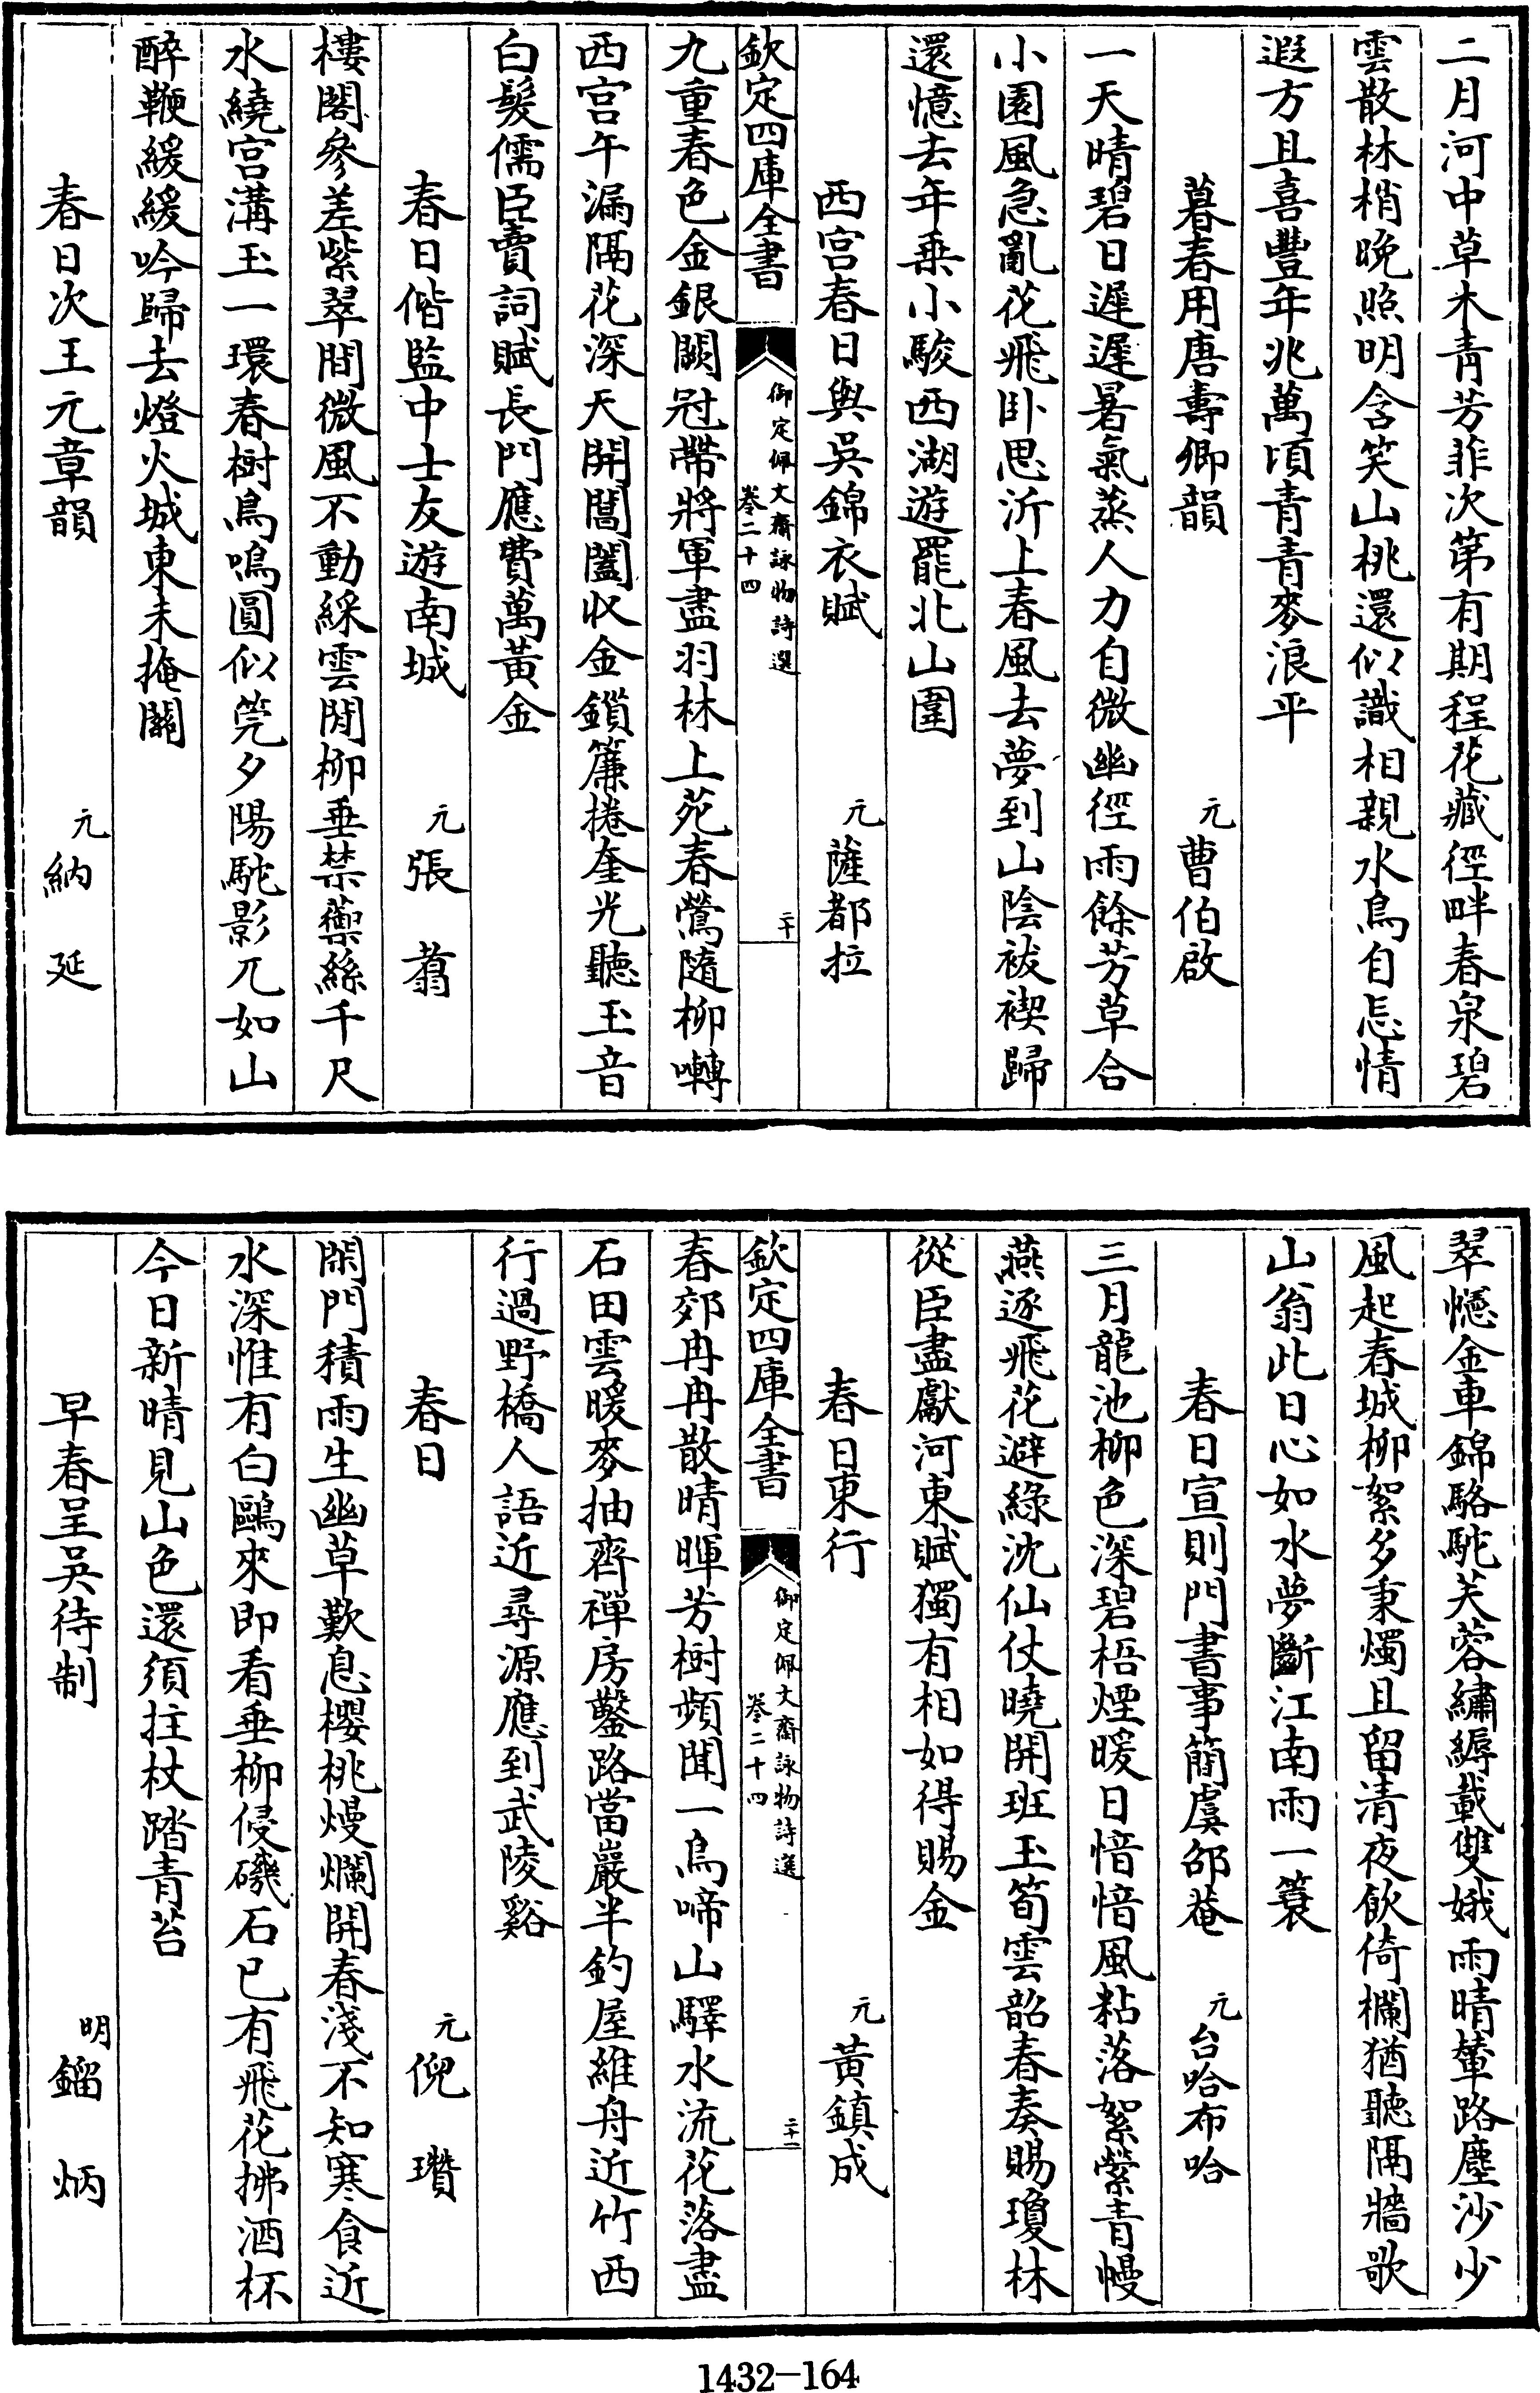 二月河中草木青芳菲次第有期程花藏徑畔春泉碧
雲散林梢晩照明含笑山桃還似識相親水鳥自忘情
遐方且喜豐年兆萬頃青青麥浪平
暮春用唐壽卿韻 元 曹伯啟
一天晴碧日遲遲暑氣蒸人力自微幽徑雨餘芳草合
小園風急亂花飛卧思沂上春風去夢到山陰祓禊歸
還憶去年乗小駿西湖遊罷北山圍
西宫春日與吳錦衣賦 元 薩都拉
欽定四庫全書 御定佩文齋詠物詩選 卷二十四 二十
九重春色金銀闕冠帶將軍盡羽林上苑春鶯隨柳囀
西宫午漏隔花深天開閶闔收金鎖簾捲奎光聽玉音
白髮儒臣賣詞賦長門應費萬黃金
春日偕監中士友遊南城 元 張翥
樓閣參差紫翠間微風不動綵雲閒柳垂禁籞絲千尺
水繞宫溝玉一環春樹鳥鳴圓似筦夕陽駝影兀如山
醉鞭緩緩吟歸去燈火城東未掩關
春日次王元章韻 元 納延
翠幰金車錦駱駝芙蓉繡縟載雙娥雨晴輦路塵沙少
風起春城柳絮多秉燭且留清夜飲倚欄猶聽隔牆歌
山翁此日心如水夢斷江南雨一簑
春日宣則門書事簡虞邵菴 元 台哈布哈
三月龍池柳色深碧梧煙暖日愔愔風粘落絮縈青幔
燕逐飛花避綠沈仙仗曉開班玉筍雲韶春奏賜瓊林
從臣盡獻河東賦獨有相如得賜金
春日東行 元 黃鎮成
欽定四庫全書 御定佩文齋詠物詩選 卷二十四 二十一
春郊冉冉散晴暉芳樹頻聞一鳥啼山驛水流花落盡
石田雲暖麥抽齊禪房鑿路當巖半釣屋維舟近竹西
行過野橋人語近尋源應到武陵谿
春日 元 倪瓚
閑門積雨生幽草歎息櫻桃熳爛開春淺不知寒食近
水深惟有白鷗來即看垂柳侵磯石已有飛花拂酒杯
今日新晴見山色還須拄杖踏青苔
早春呈吳待制 明 鎦炳
1432-164